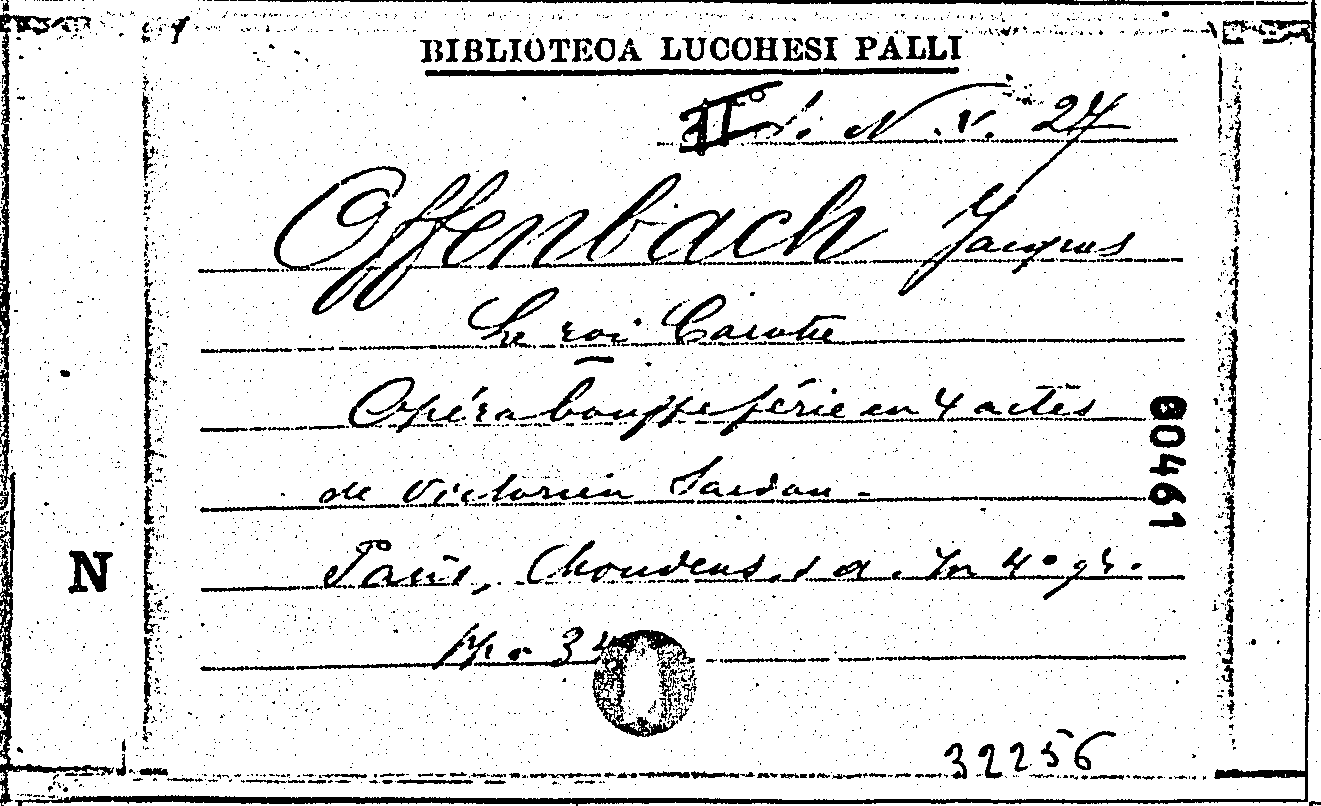 BIBLIOTECA LUCCHESI PALLI
N. V. 27
Offenbach Jacques
Le roi Carotte
Opéra bouffe férie en 4 actes
de Victorien Sardou -
60461
Paris, Choudens, s a. In 4° gr.
N
32256